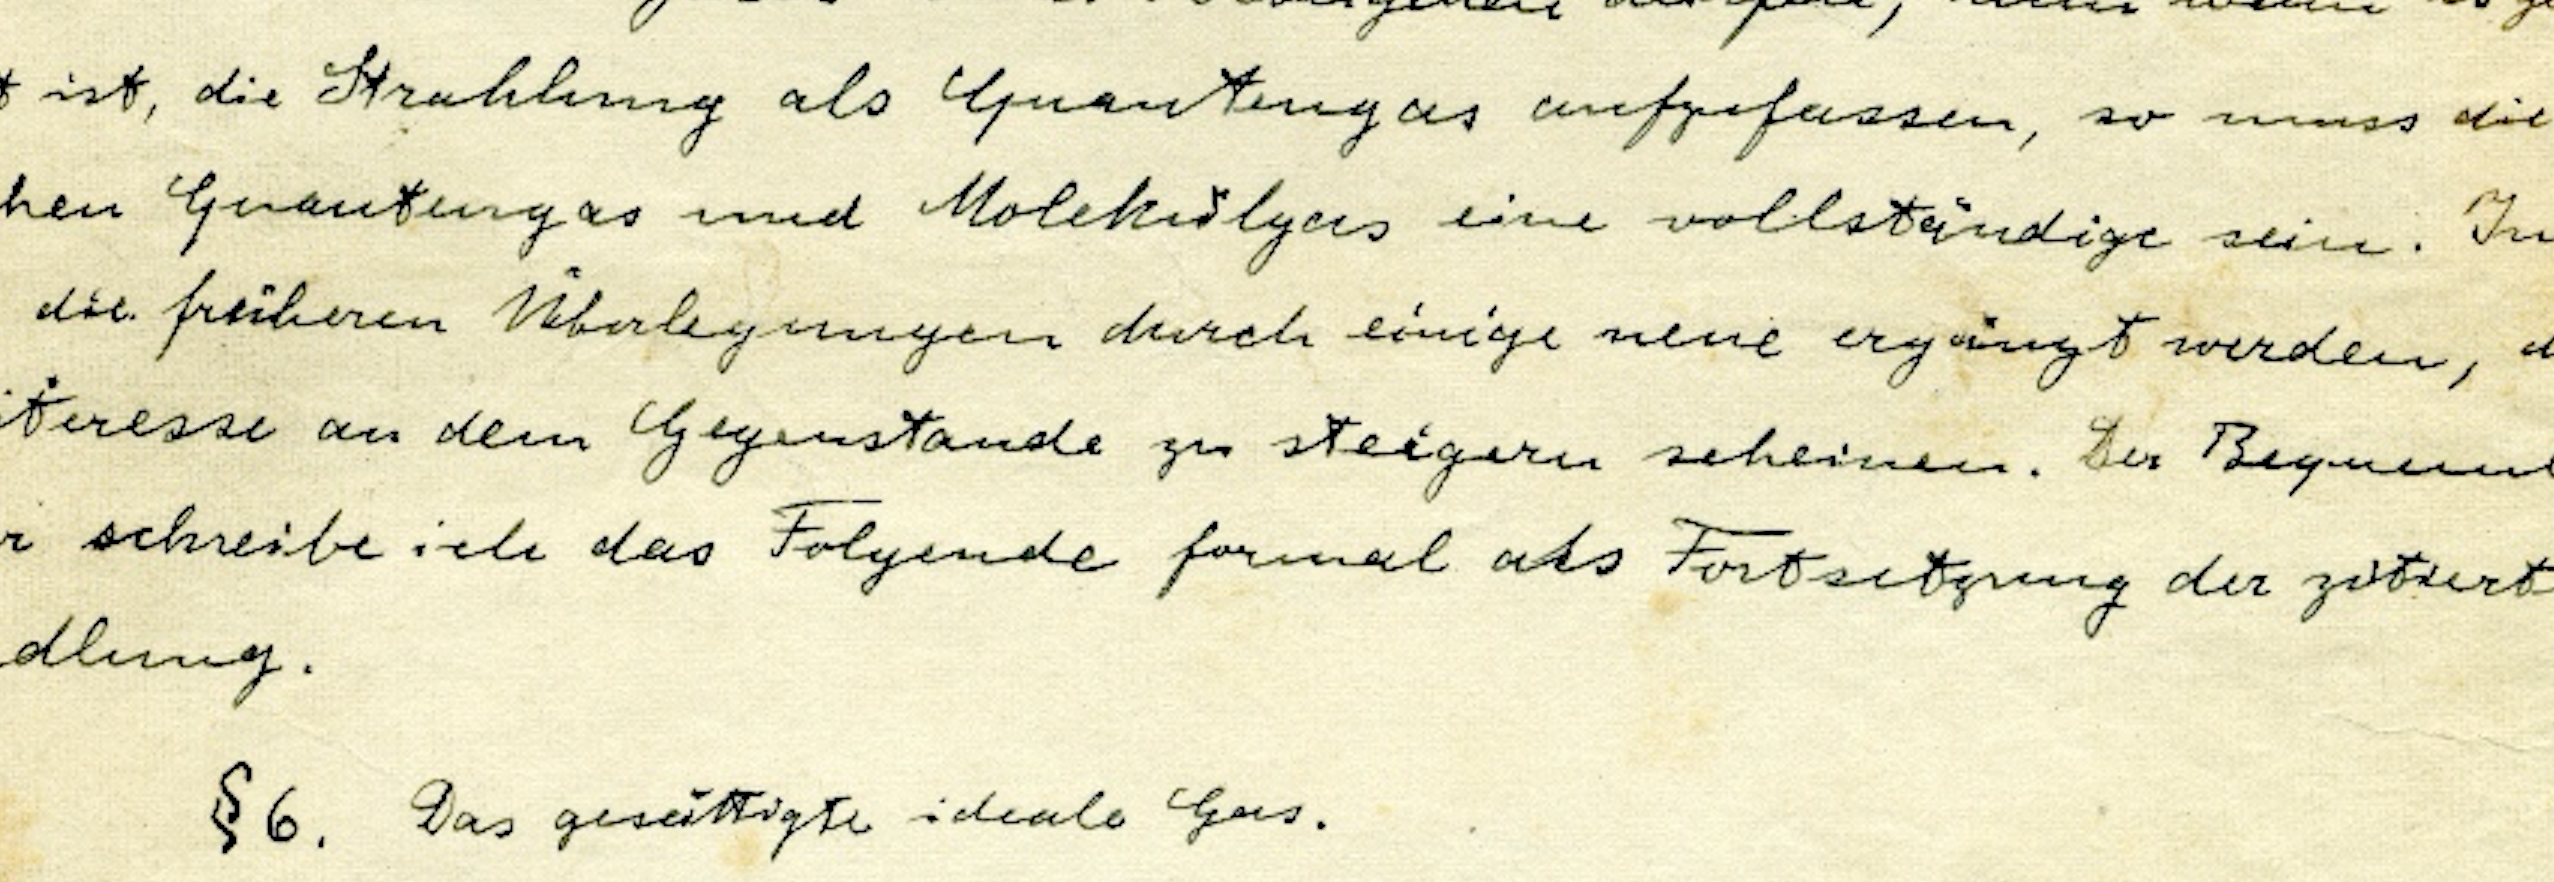 t ist, die Strahlung als Quantengas aufzufassen, so muss die
hen Quantengas und Molekülgas eine vollständige sein. In
die früheren Überlegungen durch einige neue ergänzt werden, d
teresse an dem Gegenstande zu steigern scheinen. Der Bequeml
r schreibe ich das Folgende formal als Fortsetzung der zitiert
dlung.
§ 6. Das gesättigte ideale Gas.